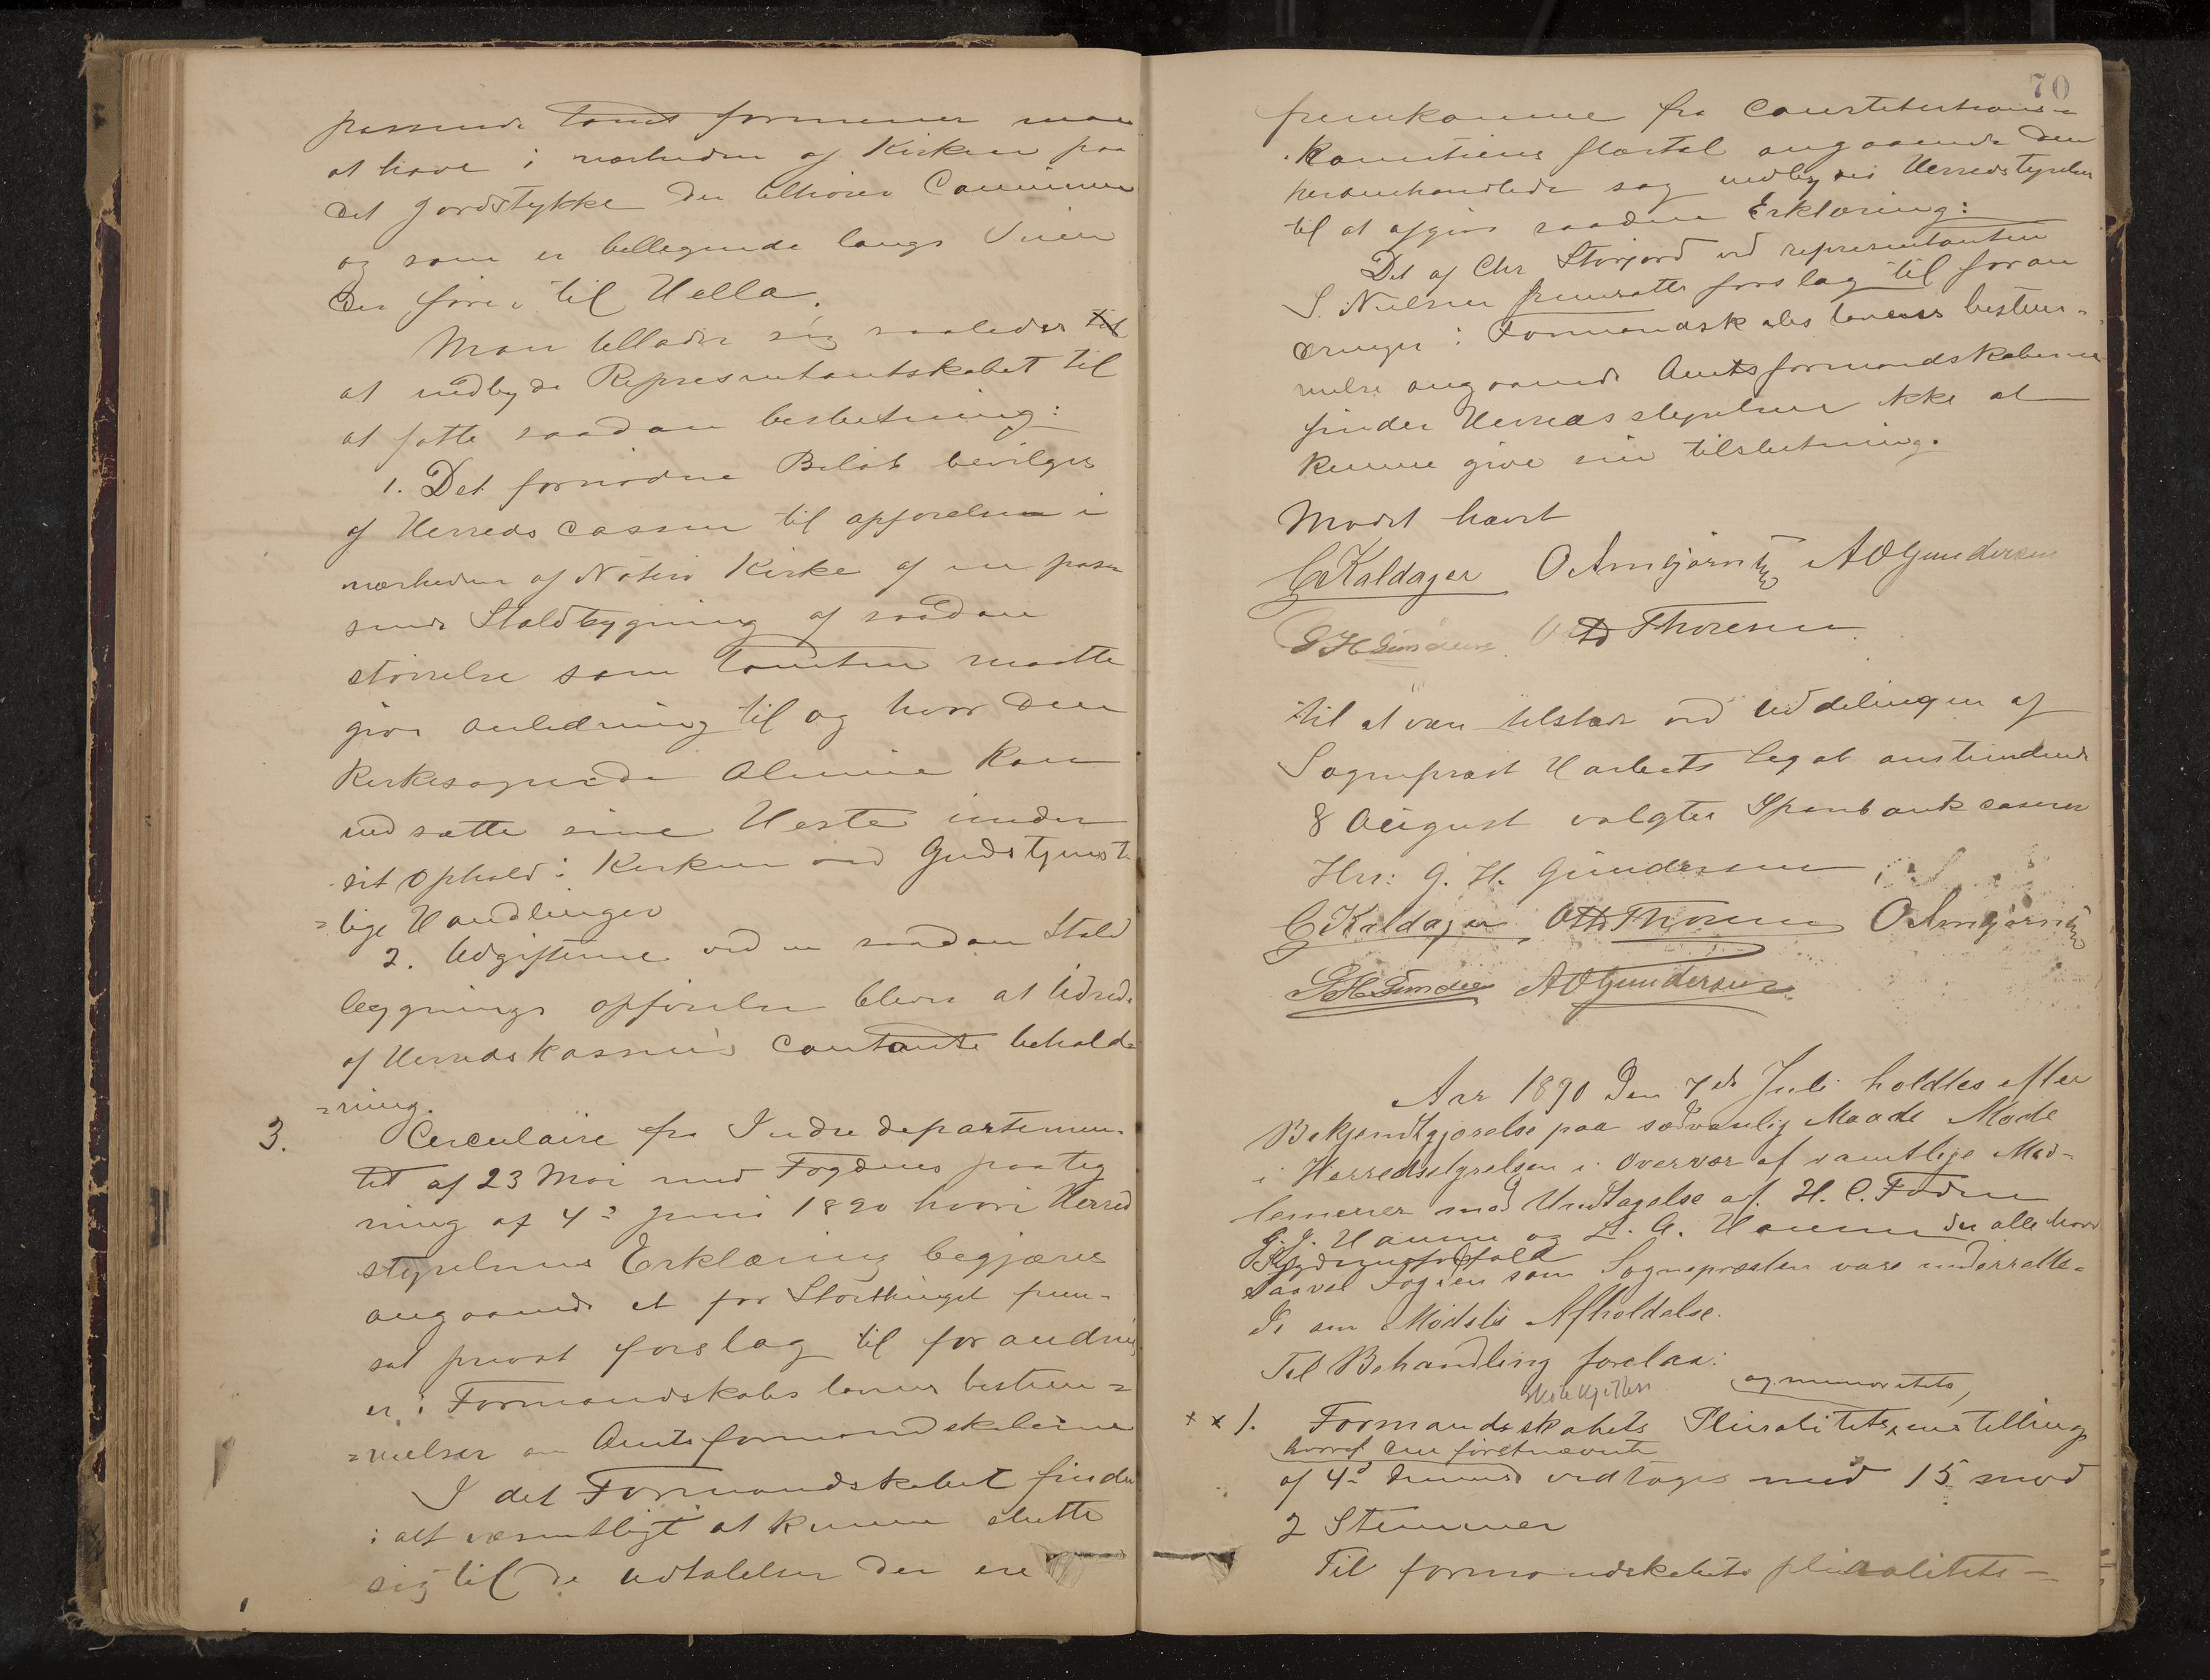 passende Tomt formener man
at have i nærheden af Kirken paa
det Jordstykke der tilhører Communen
og som er beliggende langs Veien
der fører til Hella.
Man tillader sig saaledes til
at indbyde Representantskabet til
at fatte saadan beslutning:
1. Det fornødne Beløb bevilges
af Herredscassen til opførelse i
nærheden af Nøterø Kirke af en pas-
sende Staldbygning af saadan
størrelse som Tomten maatte
give anledning til og hvor den
Kirkesøgende Almue kan
indsætte sine Heste under
sit Ophold i Kirken ved Gudstjenste
=lige Handlinger
2. Udgifterne ved en saadan Stald
bygnings opførelse bliver at Udrede
af Herredskassens Contante behold-
=ning.
3. Circulaire fra Indredepartemen-
tet af 23 Mai med Fogdens paateg
ning af 4de Juni 1890 hvori Herred
styrelsens Erklæring begjæres
angaaende et for Storthinget frem-
sat privat forslag til forandring
er i Formandskabs lovens bestem=
=melser om Amtsformandskaberne
I det Formandskabet finder
i alt væsentligt at kunne slutte
sig til de Udtalelser der ere
70
fremkomne fra Constitutions=
Komiteens flertal angaaende den
heromhandlede sag indbydes Herredstyrelsen
til at afgive saadan Erklæring:
Det af Chr Storjord ved representanten
S. Nielsen fremsatte forslag til foran
dringer i Formandskabslovens bestem-
melse angaaende Amtsformandskaberne
finder Herredsstyrelsen ikke at
kunne give sin tilslutning.
Mødet hævet
C Kaldager O Arnbjørnsen A O Gundersen
G H Gundersen Otto Thoresen
til at være tilstede ved Uddelingen af
Sogneprest Harbits legat anstundende
8 August valgtes Sparebankcasserer
Hrr: G. H. Gundersen
C Kaldager Otto Thoresen O Arnbjørnsen
G H Gundersen A O Gundersen
Aar 1890 den 7de Juli holdtes efter
Bekjendtgjørelse paa sædvanlig Maade Møde
i Herredsstyrelsen i Overvær af samtlige Med-
lemmer med Undtagelse af H. C. Foden
G. J. Haune og L. A. Hansen der alle havde
Lovligt forfald
Saavel Fogden som Sognepræsten vare underrette-
de om Mødets Afholdelse.
Til Behandling forelaa:
og minoritets
x x 1. Formandsskabets Pluralitets, instilling
hvoraf den førstnævnte
af 4de dennes vedtoges med 15 mod
2 Stemmer
Til formandskabets pluralitets=